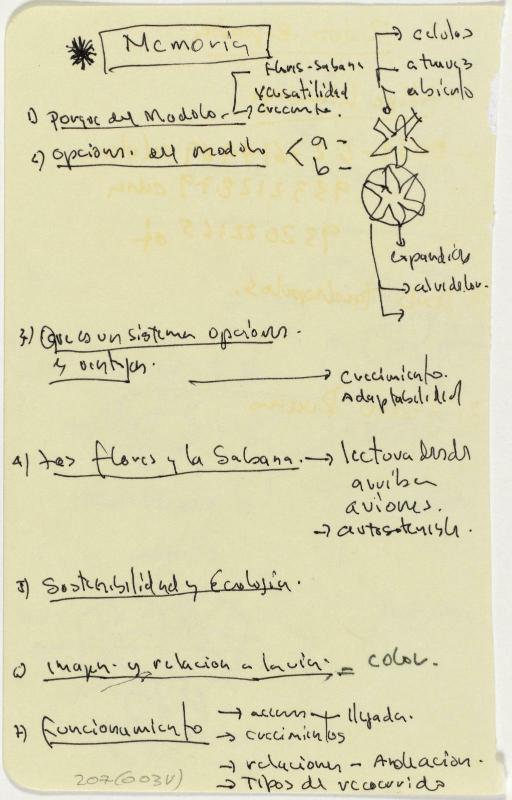 Memoria
Flores-Sabana
Versatilidad
creciente.
celulas
abierto
1) Porque del Modulo.
2) Opciones del modulo
a -
b -
expandido
3) Que es un sistema opciones.
y ventajas.
crecimiento.
Adaptabilidad
4) Las Flores y la Sabana.
lectura desde
arriba
aviones.
autosostenible.
5) Sostenibilidad y Ecologia.
6) Imagen y relacion a la via. = color.
7) Funcionamiento
acceso llegada.
crecimientos
relaciones - Ampliacion.
Tipos de recorrido
207(G03V)